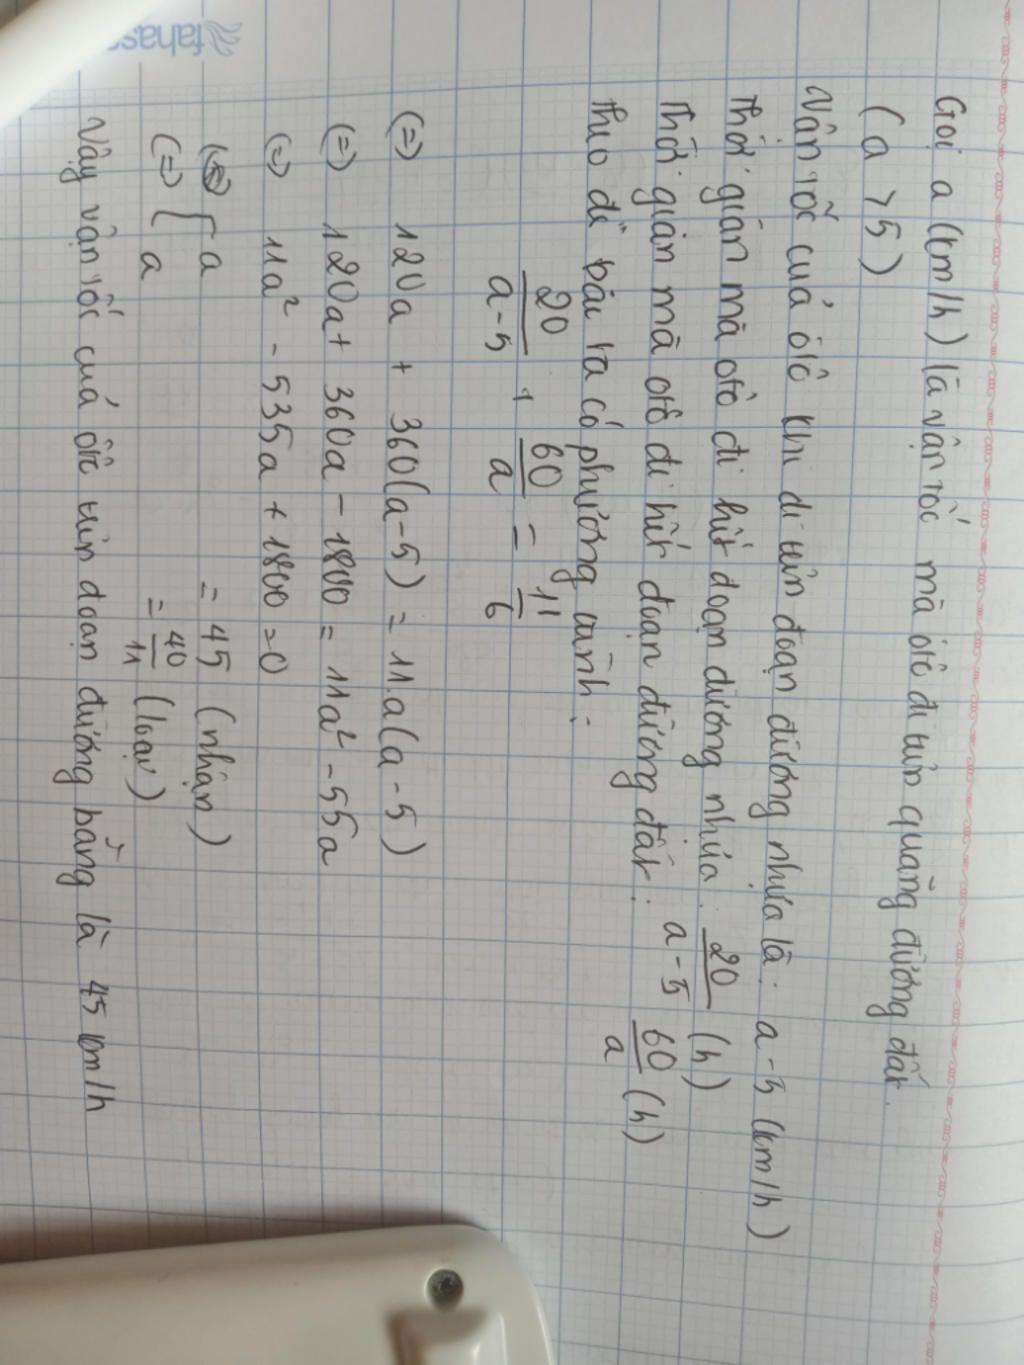 fahasa
Gọi a (km/h) là vận tốc mà ôtô đi trên quãng đường đất.
(a > 5)
Vận tốc của ôtô khi đi trên đoạn đường nhựa là: a - 5 (km/h)
Thời gian mà ôtô đi hết đoạn đường nhựa: 20/(a-5) (h)
Thời gian mà ôtô đi hết đoạn đường đất: 60/a (h)
Theo đề bài ta có phương trình:
20/(a-5) + 60/a = 11/6
(=) 120a + 360(a-5) = 11.a(a-5)
(=) 120a + 360a - 1800 = 11a² - 55a
(=) 11a² - 535a + 1800 = 0
(=) [ a = 45 (nhận)
a = 40/11 (loại)
Vậy vận tốc của ôtô trên đoạn đường bằng là 45 km/h